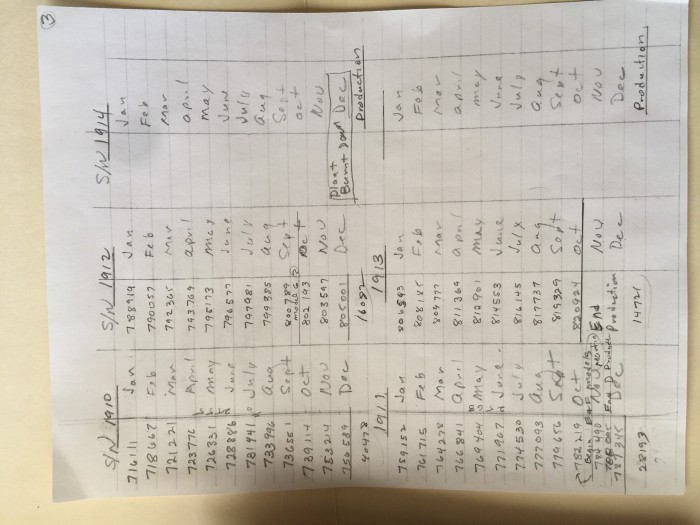 3
S/N 1910
716111 Jan.
718667 Feb
721221 Mar
723776 April
726331 May
728886 June
731441 July
733996 Aug
736551 Sept
739114 Oct
753214 Nov
756589 Dec
40478
1911
759152 Jan
761715 Feb
764278 Mar
766841 April
769404 May
771967 June.
774530 July
777093 Aug
779656 Sept
782219 Oct
Nov
Dec
28193
S/N 1912
788919 Jan
790557 Feb
792365 Mar
793769 April
795173 May
796577 June
797981 July
799385 Aug
800789 Sept
802193 Oct
803597 Nov
805001 Dec
16082
1913
806593 Jan
808185 Feb
809777 Mar
811369 April
812961 May
814553 June
816145 July
817737 Aug
819329 Sept
820924 Oct
End Nov
Production Dec
14721
S/N 1914
Jan
Feb
Mar
April
May
June
July
Aug
Sept
Oct
Nov
Plant Burnt down Dec
Production
Jan
Feb
Mar
April
May
June
July
Aug
Sept
Oct
Nov
Dec
Production